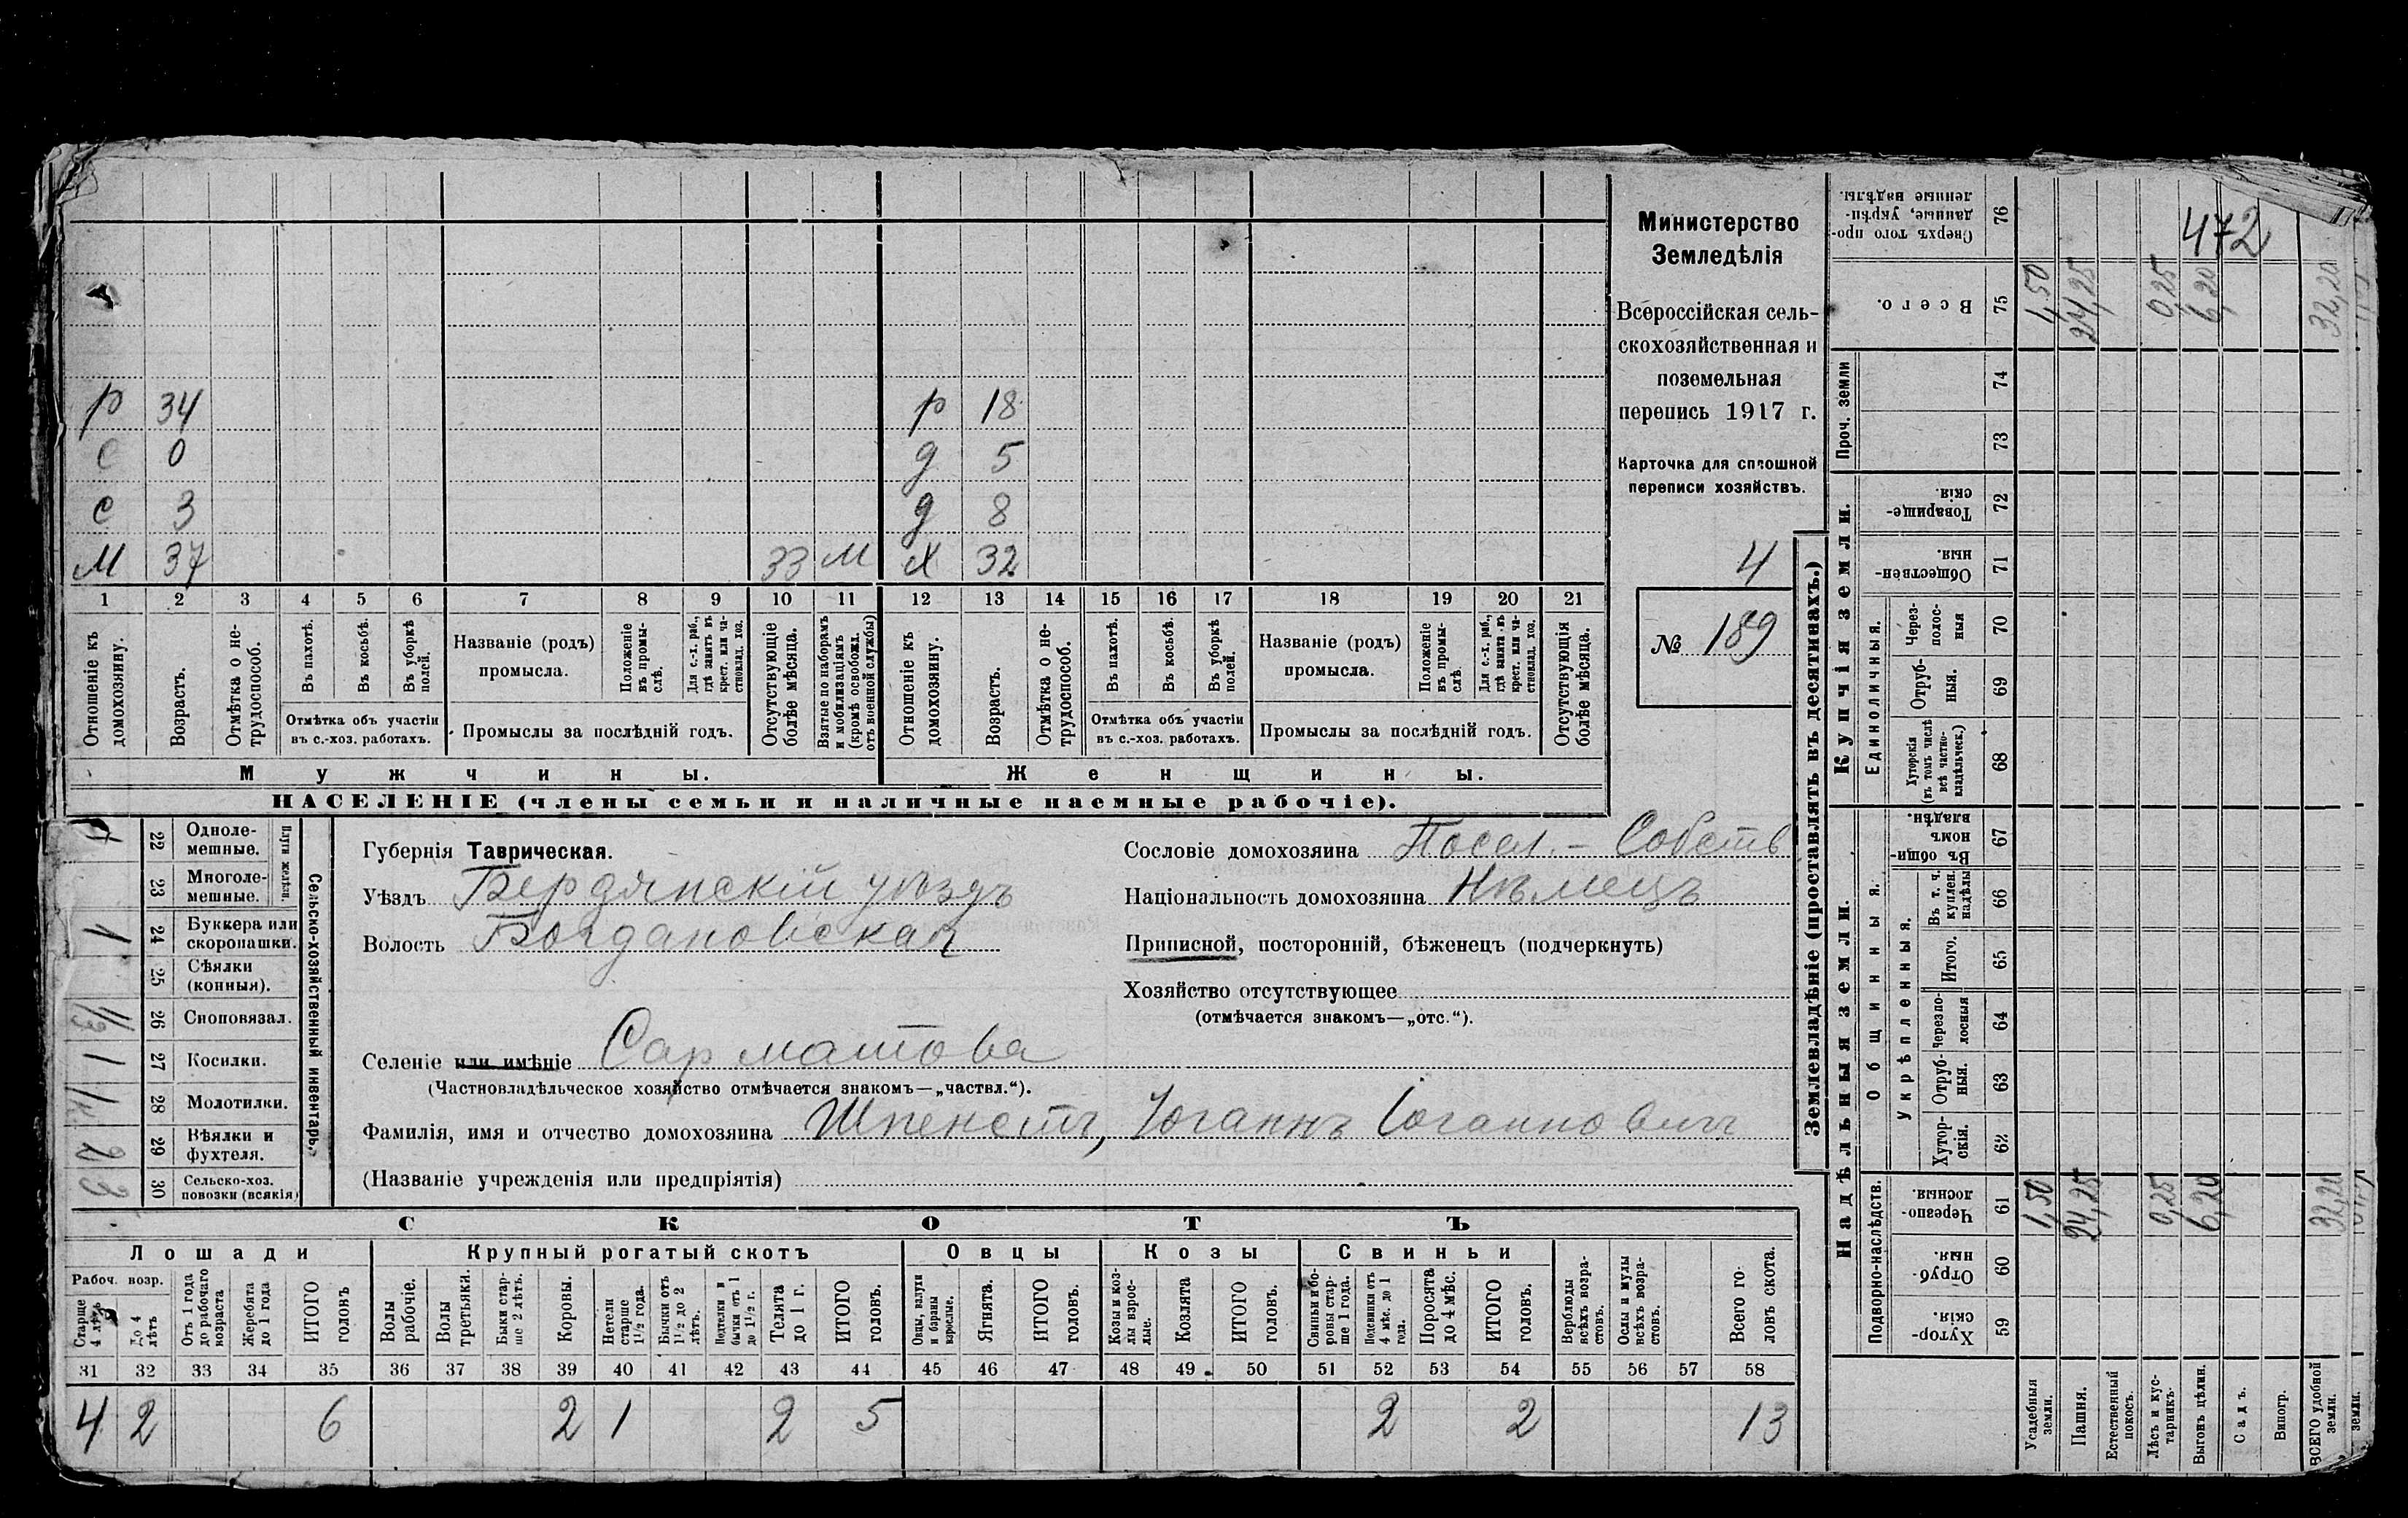 472
р 34 р 18
с 0 д 5
с 3 д 8
М 37 33 М Х 32
1 2 3 4 5 6 7 8 9 10 11 12 13 14 15 16 17 18 19 20 21
Отношеніе къ домохозяину.
Возрастъ.
Отмѣтка о не-
трудоспособ.
Въ пахотѣ.
Въ косьбѣ.
Въ уборкѣ
полей.
Отмѣтка объ участіи
въ с.-хоз. работахъ.
Названіе (родъ)
промысла.
Положеніе
въ промы-
слѣ.
Для с.-х. раб.,
гдѣ занятъ въ
крест. или ча-
стновлад. хоз.
Промыслы за послѣдній годъ.
Отсутствующіе
болѣе мѣсяца.
Взятые по наборамъ
и мобилизаціямъ
(кромѣ освобожд.
отъ военной службы)
Отношеніе къ
домохозяину.
Возрастъ.
Отмѣтка о не-
трудоспособ.
Въ пахотѣ.
Въ косьбѣ.
Въ уборкѣ
полей.
Отмѣтка объ участіи
въ с.-хоз. работахъ.
Названіе (родъ)
промысла.
Положеніе
въ промы-
слѣ
Для с.-х. раб.,
гдѣ занята въ
крест. или ча-
стновлад. хоз.
Промыслы за послѣдній годъ.
Отсутствующія
болѣе мѣсяца.
Мужчины.
Женщины.
НАСЕЛЕНІЕ (члены семьи и наличные наемные рабочіе).
Министерство
Земледѣлія
Всероссійская сель-
скохозяйственная и
поземельная
перепись 1917 г.
Карточка для сплошной
переписи хозяйствъ.
4
№ 189
Сельско-хозяйственный инвентарь.
Плуги желѣзн.
22 Одноле-
мешные.
23 Многоле-
мешные.
1 24 Буккера или
скоропашки.
25 Сѣялки
(конныя).
1/3 26 Сноповязал.
1 27 Косилки.
28 Молотилки.
2 29 Вѣялки и
фухтеля.
3 30 Сельско-хоз.
повозки (всякія)
Губернія Таврическая.
Уѣздъ Бердянскій уѣздъ
Волость Богдановская
Селеніе или имѣніе Сарматова
(Частновладѣльческое хозяйство отмѣчается знакомъ—„частвл.“).
Фамилія, имя и отчество домохозяина Шпенстъ, Іоганнъ Іоганновичъ
(Названіе учрежденія или предпріятія)
Сословіе домохозяина Посел. - Собств
Національность домохозяина Нѣмецъ
Приписной, посторонній, бѣженецъ (подчеркнуть)
Хозяйство отсутствующее
(отмѣчается знакомъ—„отс.“).
СКОТЪ
Лошади Крупный рогатый скотъ Овцы Козы Свиньи
Рабоч. возр.
Старше
4 лѣтъ
До 4
лѣтъ
Отъ 1 года
до рабочаго
возраста
Жеребята
до 1 года
ИТОГО
головъ
Волы
рабочіе.
Волы
третьяки.
Быки стар-
ше 2 лѣтъ.
Коровы.
Нетели
старше
1½ года.
Бычки отъ
1½ до 2
лѣтъ.
Подтелки и
бычки отъ 1
до 1½ г.
Телята
до 1 г.
ИТОГО
головъ.
Овцы, валухи
и бараны
взрослые.
Ягнята.
ИТОГО
головъ.
Козы и коз-
лы взрос-
лые.
Козлята
ИТОГО
головъ.
Свиньи и бо-
ровы стар-
ше 1 года.
Подсвинки отъ
4 мѣс. до 1
года.
Поросята
до 4 мѣс.
ИТОГО
головъ.
Верблюды
всѣхъ возра-
стовъ.
Ослы и мулы
всѣхъ возра-
стовъ.
Всего го-
ловъ скота.
31 32 33 34 35 36 37 38 39 40 41 42 43 44 45 46 47 48 49 50 51 52 53 54 55 56 57 58
4 2 6 2 1 2 5 2 2 13
Землевладѣніе (проставлять въ десятинахъ.)
Надѣльныя земли.
Купчія земли.
Проч. земли
Подворно-наслѣдств.
Общинныя.
Укрѣпленныя.
Единоличныя.
Сверхъ того про-
данные, укрѣп-
ленные надѣлы.
76
Всего.
75
4,50 24,25 0,25 6,20 32,20
74
73
Товарище-
скія.
72
Обществен-
ныя.
71
Через-
полос-
ныя
70
Отруб-
ныя.
69
Хуторскія
(въ томъ числѣ
всѣ частно-
владѣльческ.)
68
Въ общин-
номъ
владѣн.
67
Въ т. ч.
куплен.
надѣлы
66
Итого.
65
Черезпо-
лосныя
64
Отруб-
ныя.
63
Хутор-
скія.
62
Черезпо-
лосныя.
61
1,50 24,25 0,25 6,20 32,20
Отруб-
ныя.
60
Хутор-
скія.
59
Усадебныя
земли.
Пашня.
Естественный
покосъ.
Лѣсъ и кус-
тарникъ.
Выгонъ цѣлин.
Садъ.
Виногр.
ВСЕГО удобной
земли.
земли.